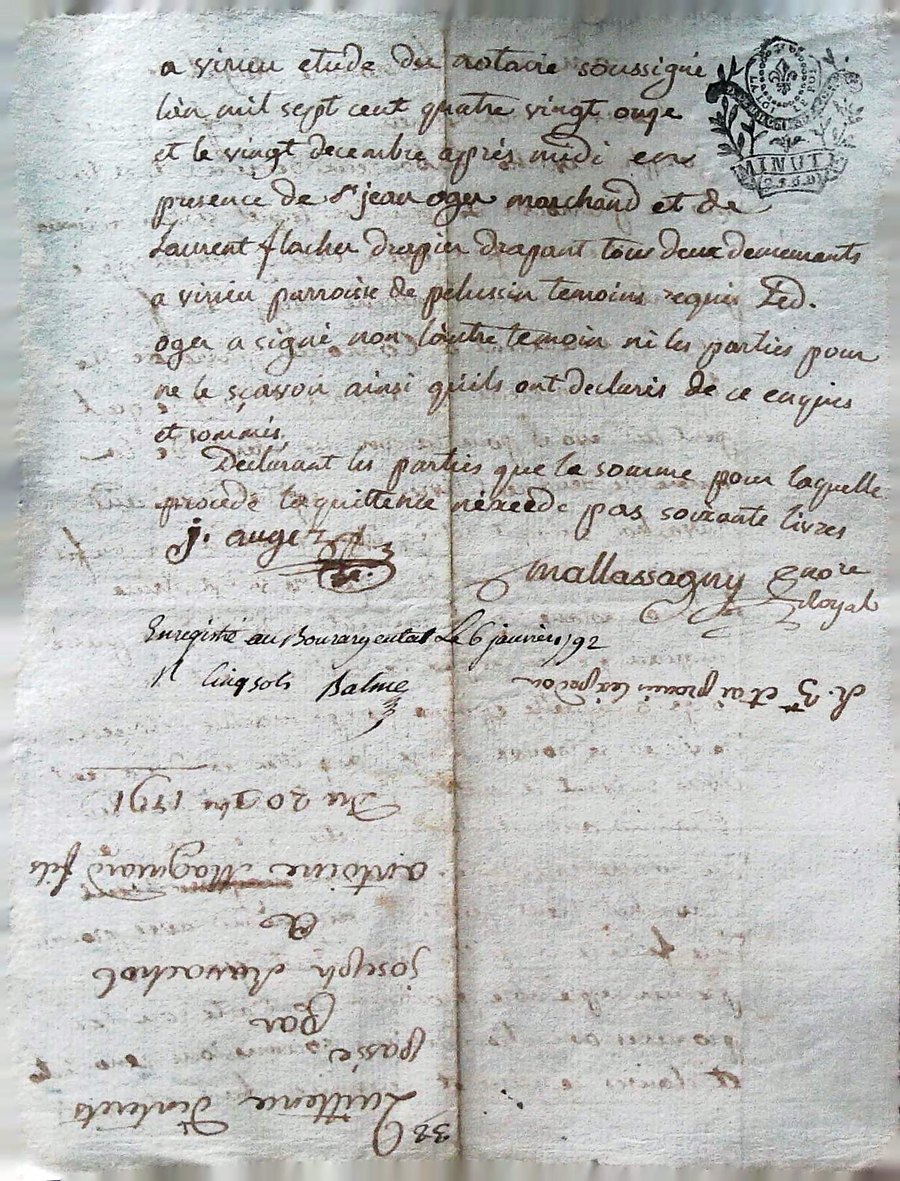 a virieu etude du notaire soussigné
l'an mil sept cent quatre vingt onze
et le vingt decembre apprés midi en
presence de Sr jean oger marchand et de
Laurent flacher drapier drapant tous deux demeurants
a virieu parroisse de pelussin temoins requis Led.
oger a signé non l'autre temoin ni les parties pour
ne le sçavoir ainsi qu'ils ont declarés de ce enquis
et sommés,
Declarant les parties que la somme pour laquelle
procede la quittence n'excede pas soixante livres
j. auger
mallassagny nore
Royal
Enregistré au Bourargental Le 6 janvier 1792
R cinq sols Balme
et ai promis l'expedon
38
Quittence d'interets
passé
par
joseph Ravachol
a
antoine Magniard fils
Du 20 xbre 1791
LA LOI LE ROI
MINUTE